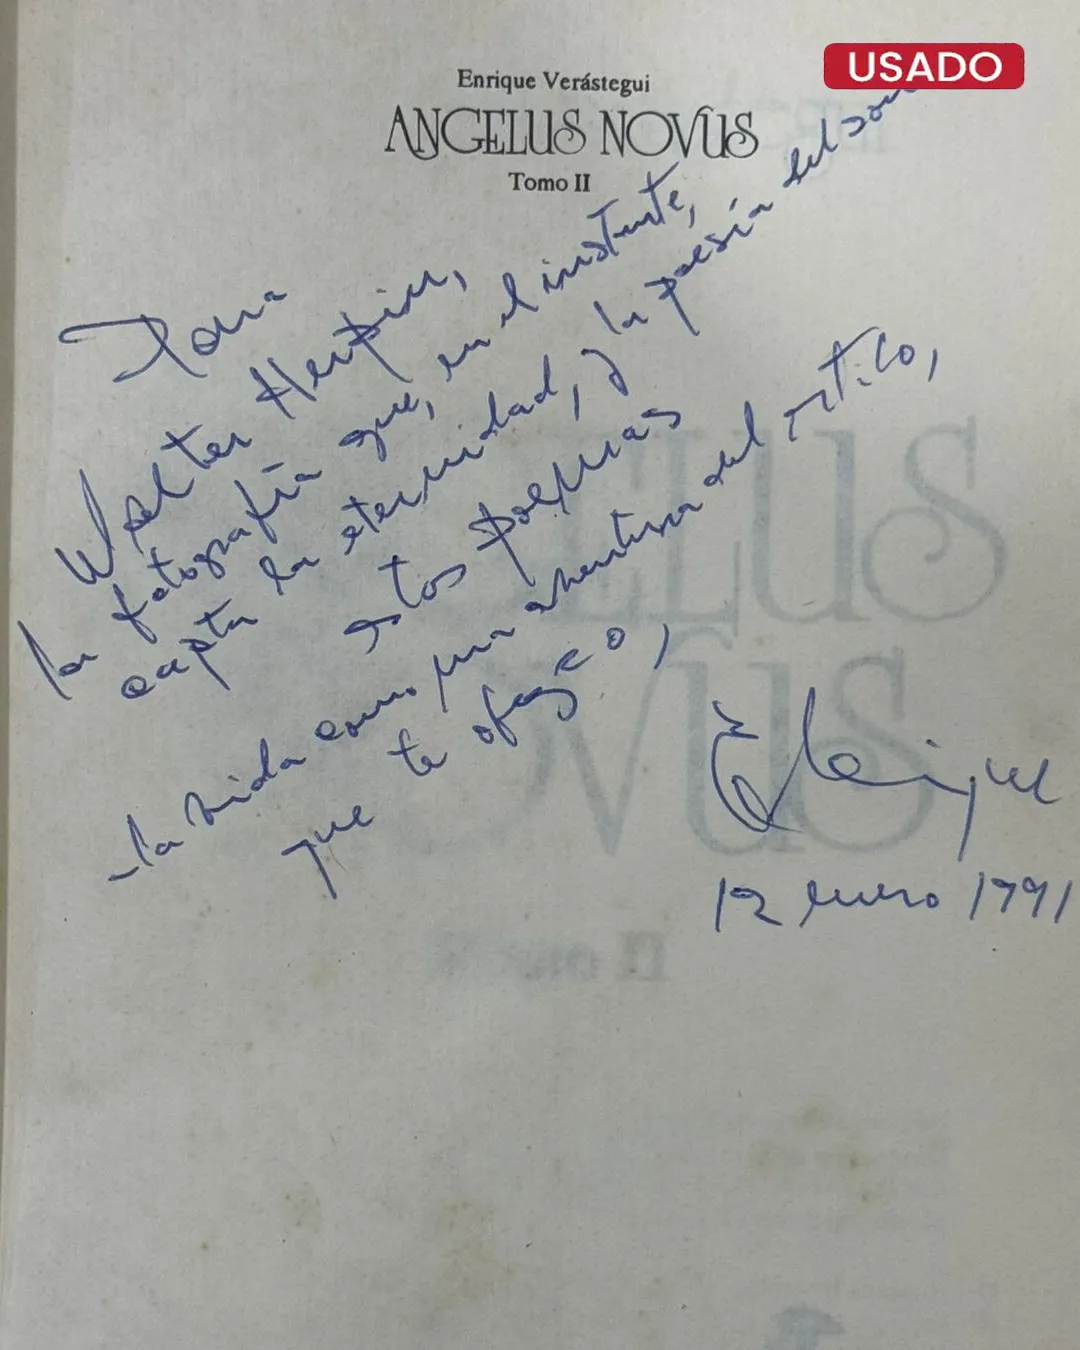 USADO
Enrique Verástegui
ANGELUS NOVUS
Tomo II
Para
Walter
la fotografía que, en el instante,
capta la eternidad, y la poesía del
estos poemas
-la vida como una aventura del
que te ofrezco,
Enrique
12 enero 1991